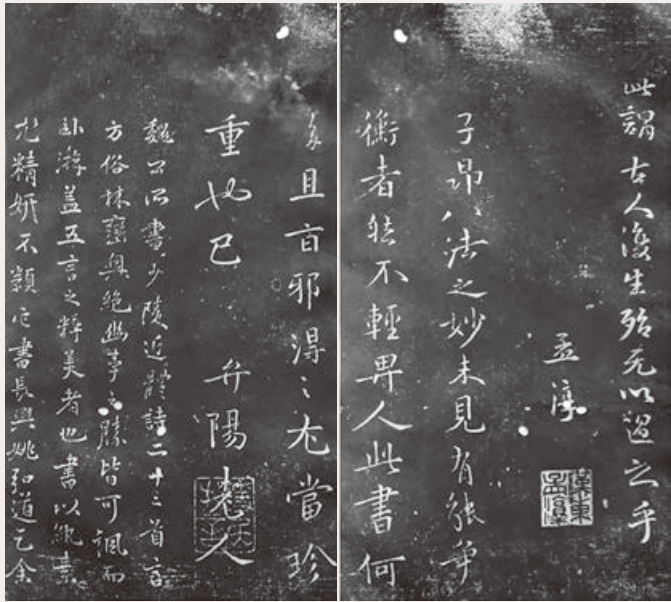 此謂古人復生殆无以過之乎
孟淳
漢東孟淳
子昂八法之妙未見有能争
衡者然不輕畀人此書何
且邪淂之尤當珍
重也已 弁陽老人
魏公所書少陵近體詩二十二首言
方俗林巒奥絶幽事之勝皆可諷而
卧游盖五言之粹美者也書以紈素
尤精妍不類它書長興姚弘道乞余